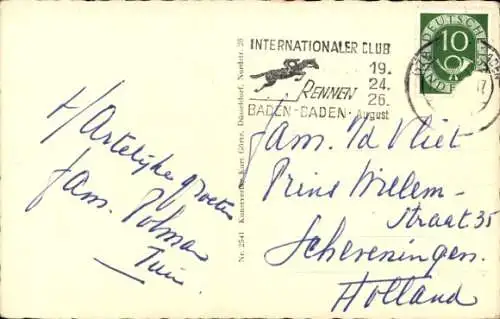 Hartelijke groeten
fam. Polman
INTERNATIONALER CLUB
19.
24.
RENNEN 26.
BADEN-BADEN · August
DEUTSCHE
10
Fam. v/d Vliet
Prins Willem-
straat 35
Scheveningen.
Holland
Nr. 2541 Kunstverlag Kurt Görtz, Düsseldorf, Nordstr. 28